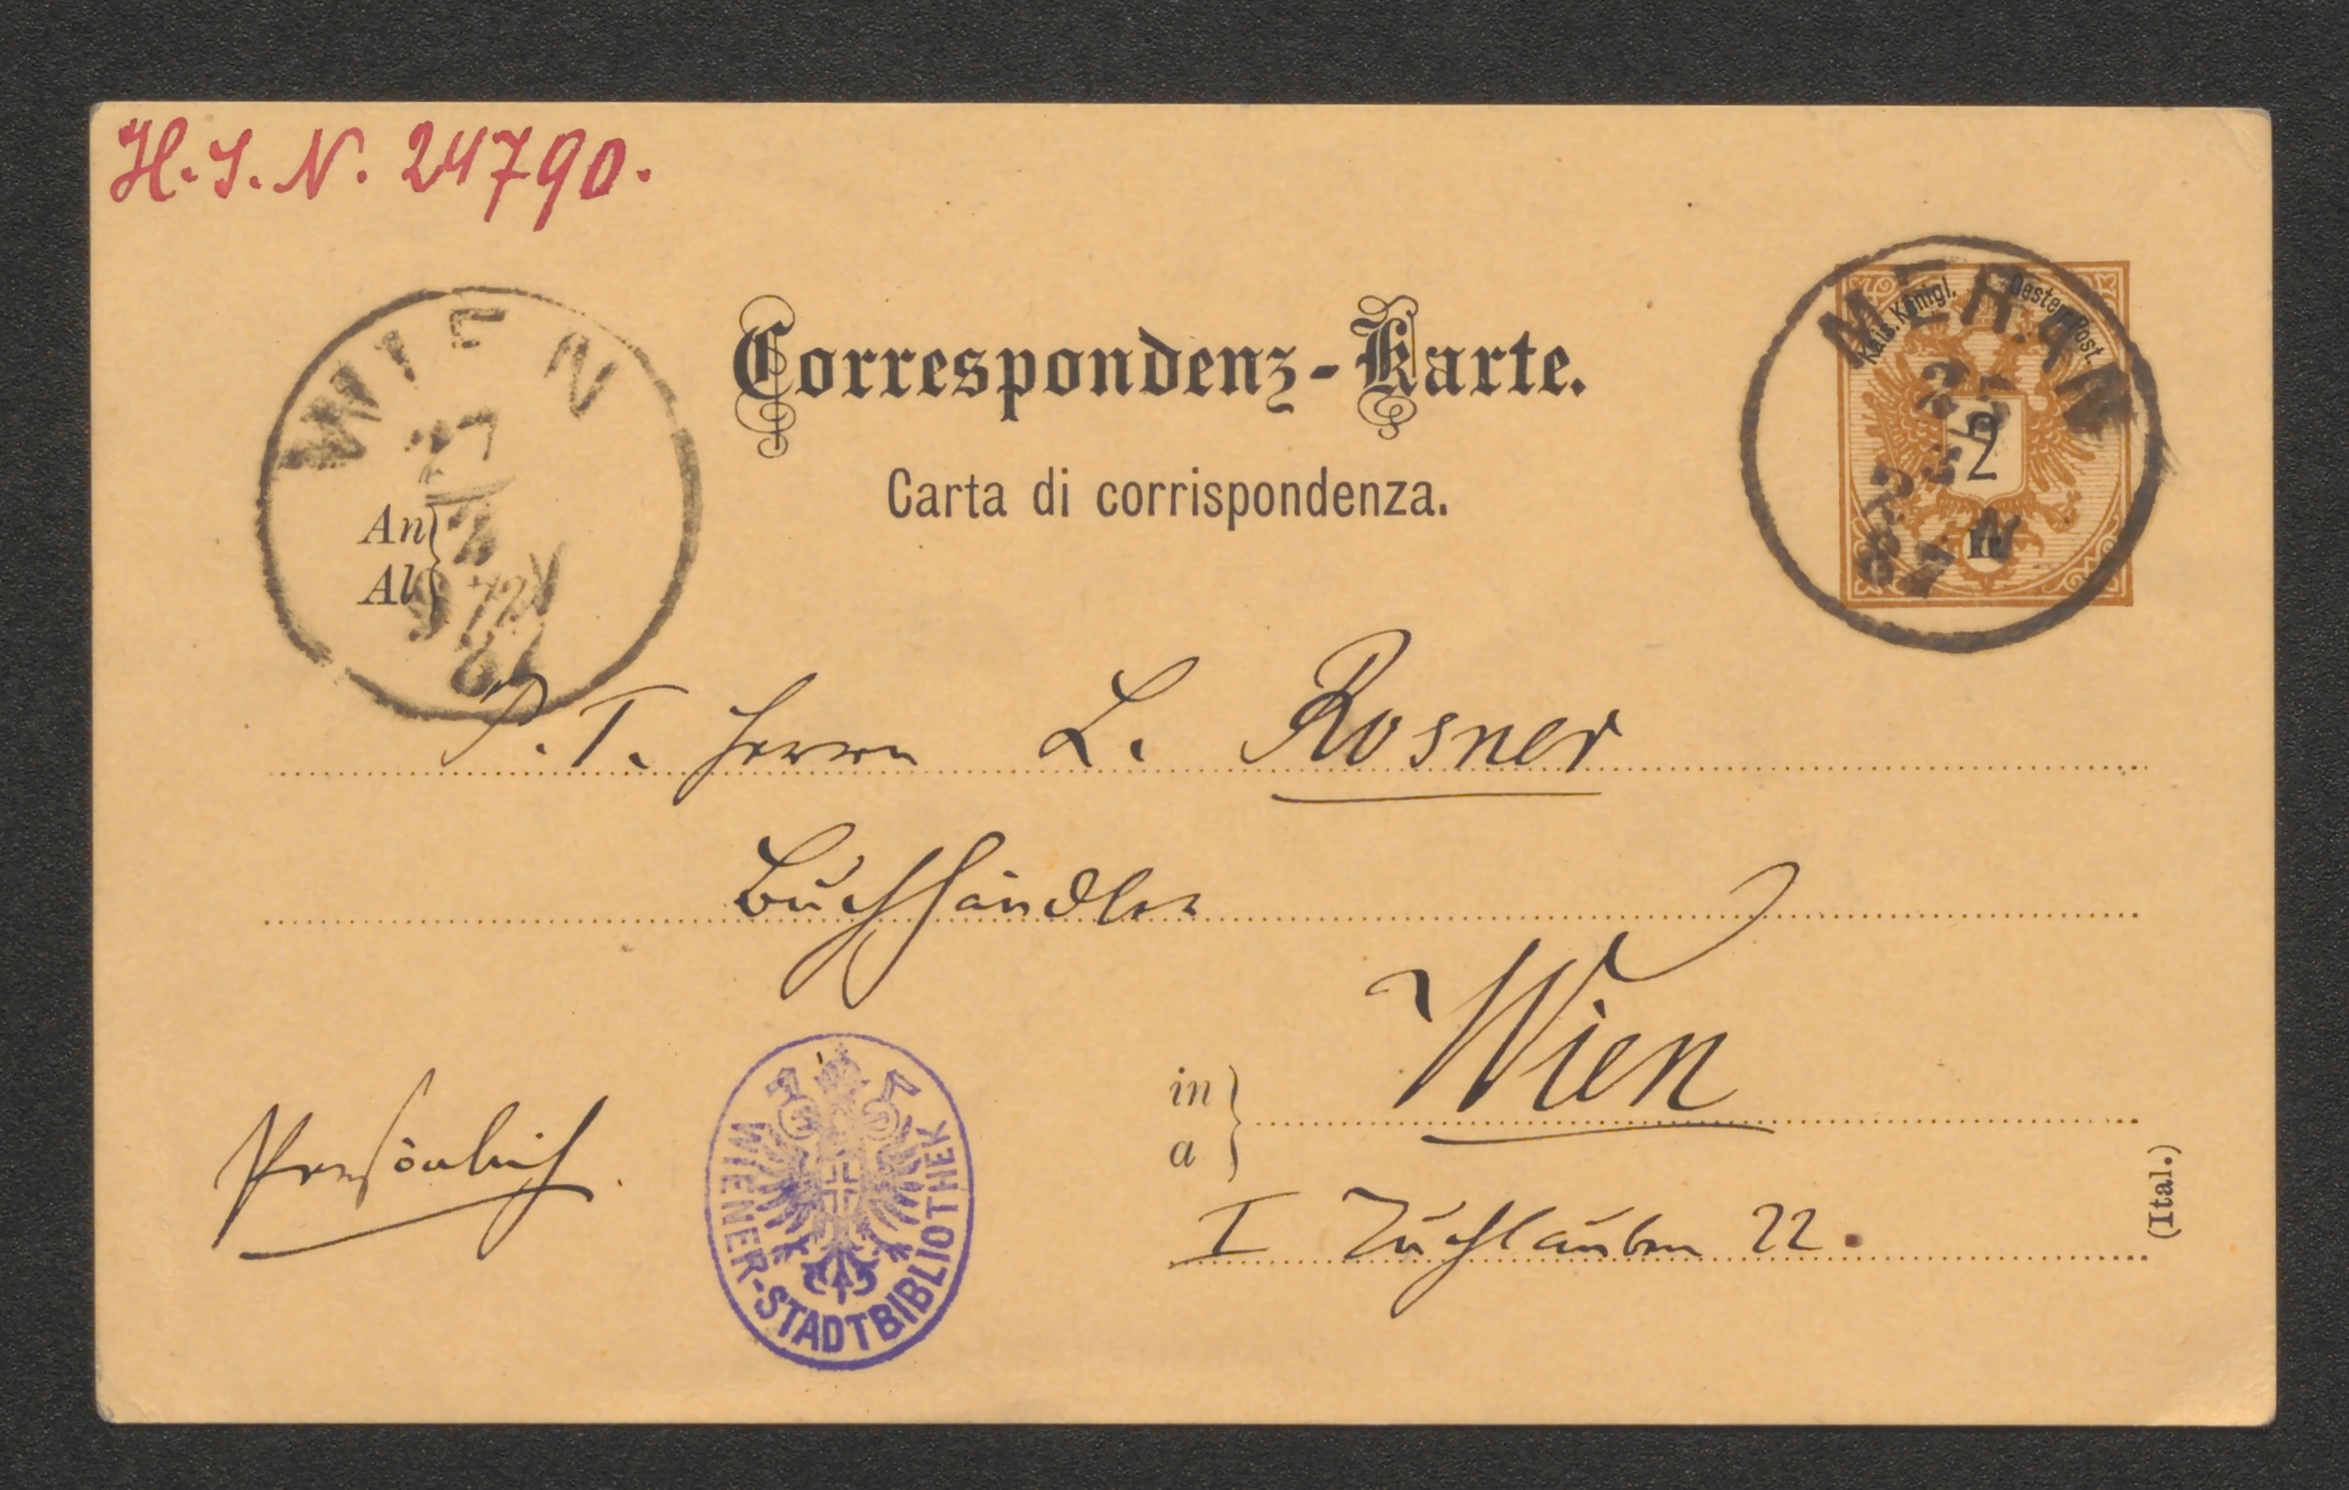 H. I. N. 24790.
WIEN
27
Correspondenz-Karte.
Carta di corrispondenza.
MERAN
Kais. Königl. Oesterr. Post.
2
An
Al
P. T. Herrn L. Rosner
Buchhändler
in
a
Wien
I Tuchlauben 22.
Persönlich.
WIENER-STADTBIBLIOTHEK
(Ital.)